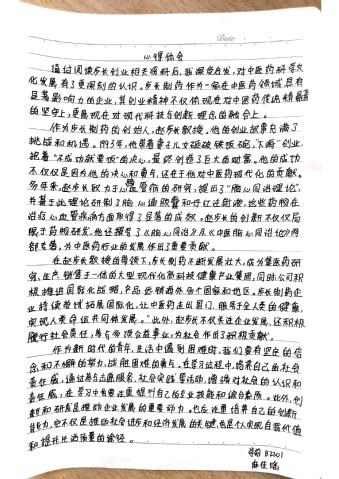 Date
心得体会
通过阅读步长创业相关资料后，我深受启发，对中医药科学文
化发展有了更深刻的认识。步长制药作为一家在中医药领域具有
显著影响力的企业，其创业精神不仅体现在对中医药传统精髓
的坚守上，更展现在对现代科技与创新理念的融合上。
作为步长制药的创始人，赵步长教授，他的创业故事充满了
挑战和机遇。1993年，他带着妻儿
抱着"不成功就要饭"的决心，最终创造了巨大的财富。他的成功
不仅仅是因为他的决心和勇气，还在于他对中医药现代化的贡献。
多年来，赵步长致力于心脑血管病的研究，提出了"脑心同治理论"，
并基于此理论研制了脑心通胶囊和丹红注射液，这些药物在
治疗心血管疾病方面取得了显著的成效。赵步长的创新不仅仅局
限于药物研发，他还撰写了《脑心同治》及《中医脑心同治论》两
部专著，为中医药行业的发展作出了重要贡献。
在赵步长教授的带领下，步长制药不断发展壮大，成为集医药研
究、生产、销售于一体的大型现代化高科技健康产业集团，同时公司积
极推进国际化战略，产品远销海外多个国家和地区，步长制药企
业持续尝试拓展国际化，让中医药走出国门，服务于全人类的健康，
实现人类命运共同体发展。"此外，赵步长不仅关注企业发展，还积极
履行社会责任，参与各项公益事业，为社会作出了积极贡献。
作为新时代的青年，生活中遇到困难时，我们要有坚定的信
念，和不懈的努力，战胜困难的勇气。在学习过程中，培养自己的社会
责任感，通过参与志愿服务、社会实践等活动，增强对社会的认识和
责任感，在学习中也要注重提升自己的专业技能和综合素质。此外，创
新和研发是推动企业发展的重要动力。也应注重培养自己的创新
能力，它不仅是推动社会进步和经济发展的关键，也是个人实现自我价值
和提升生活质量的途径。
B2201
麻佳瑶